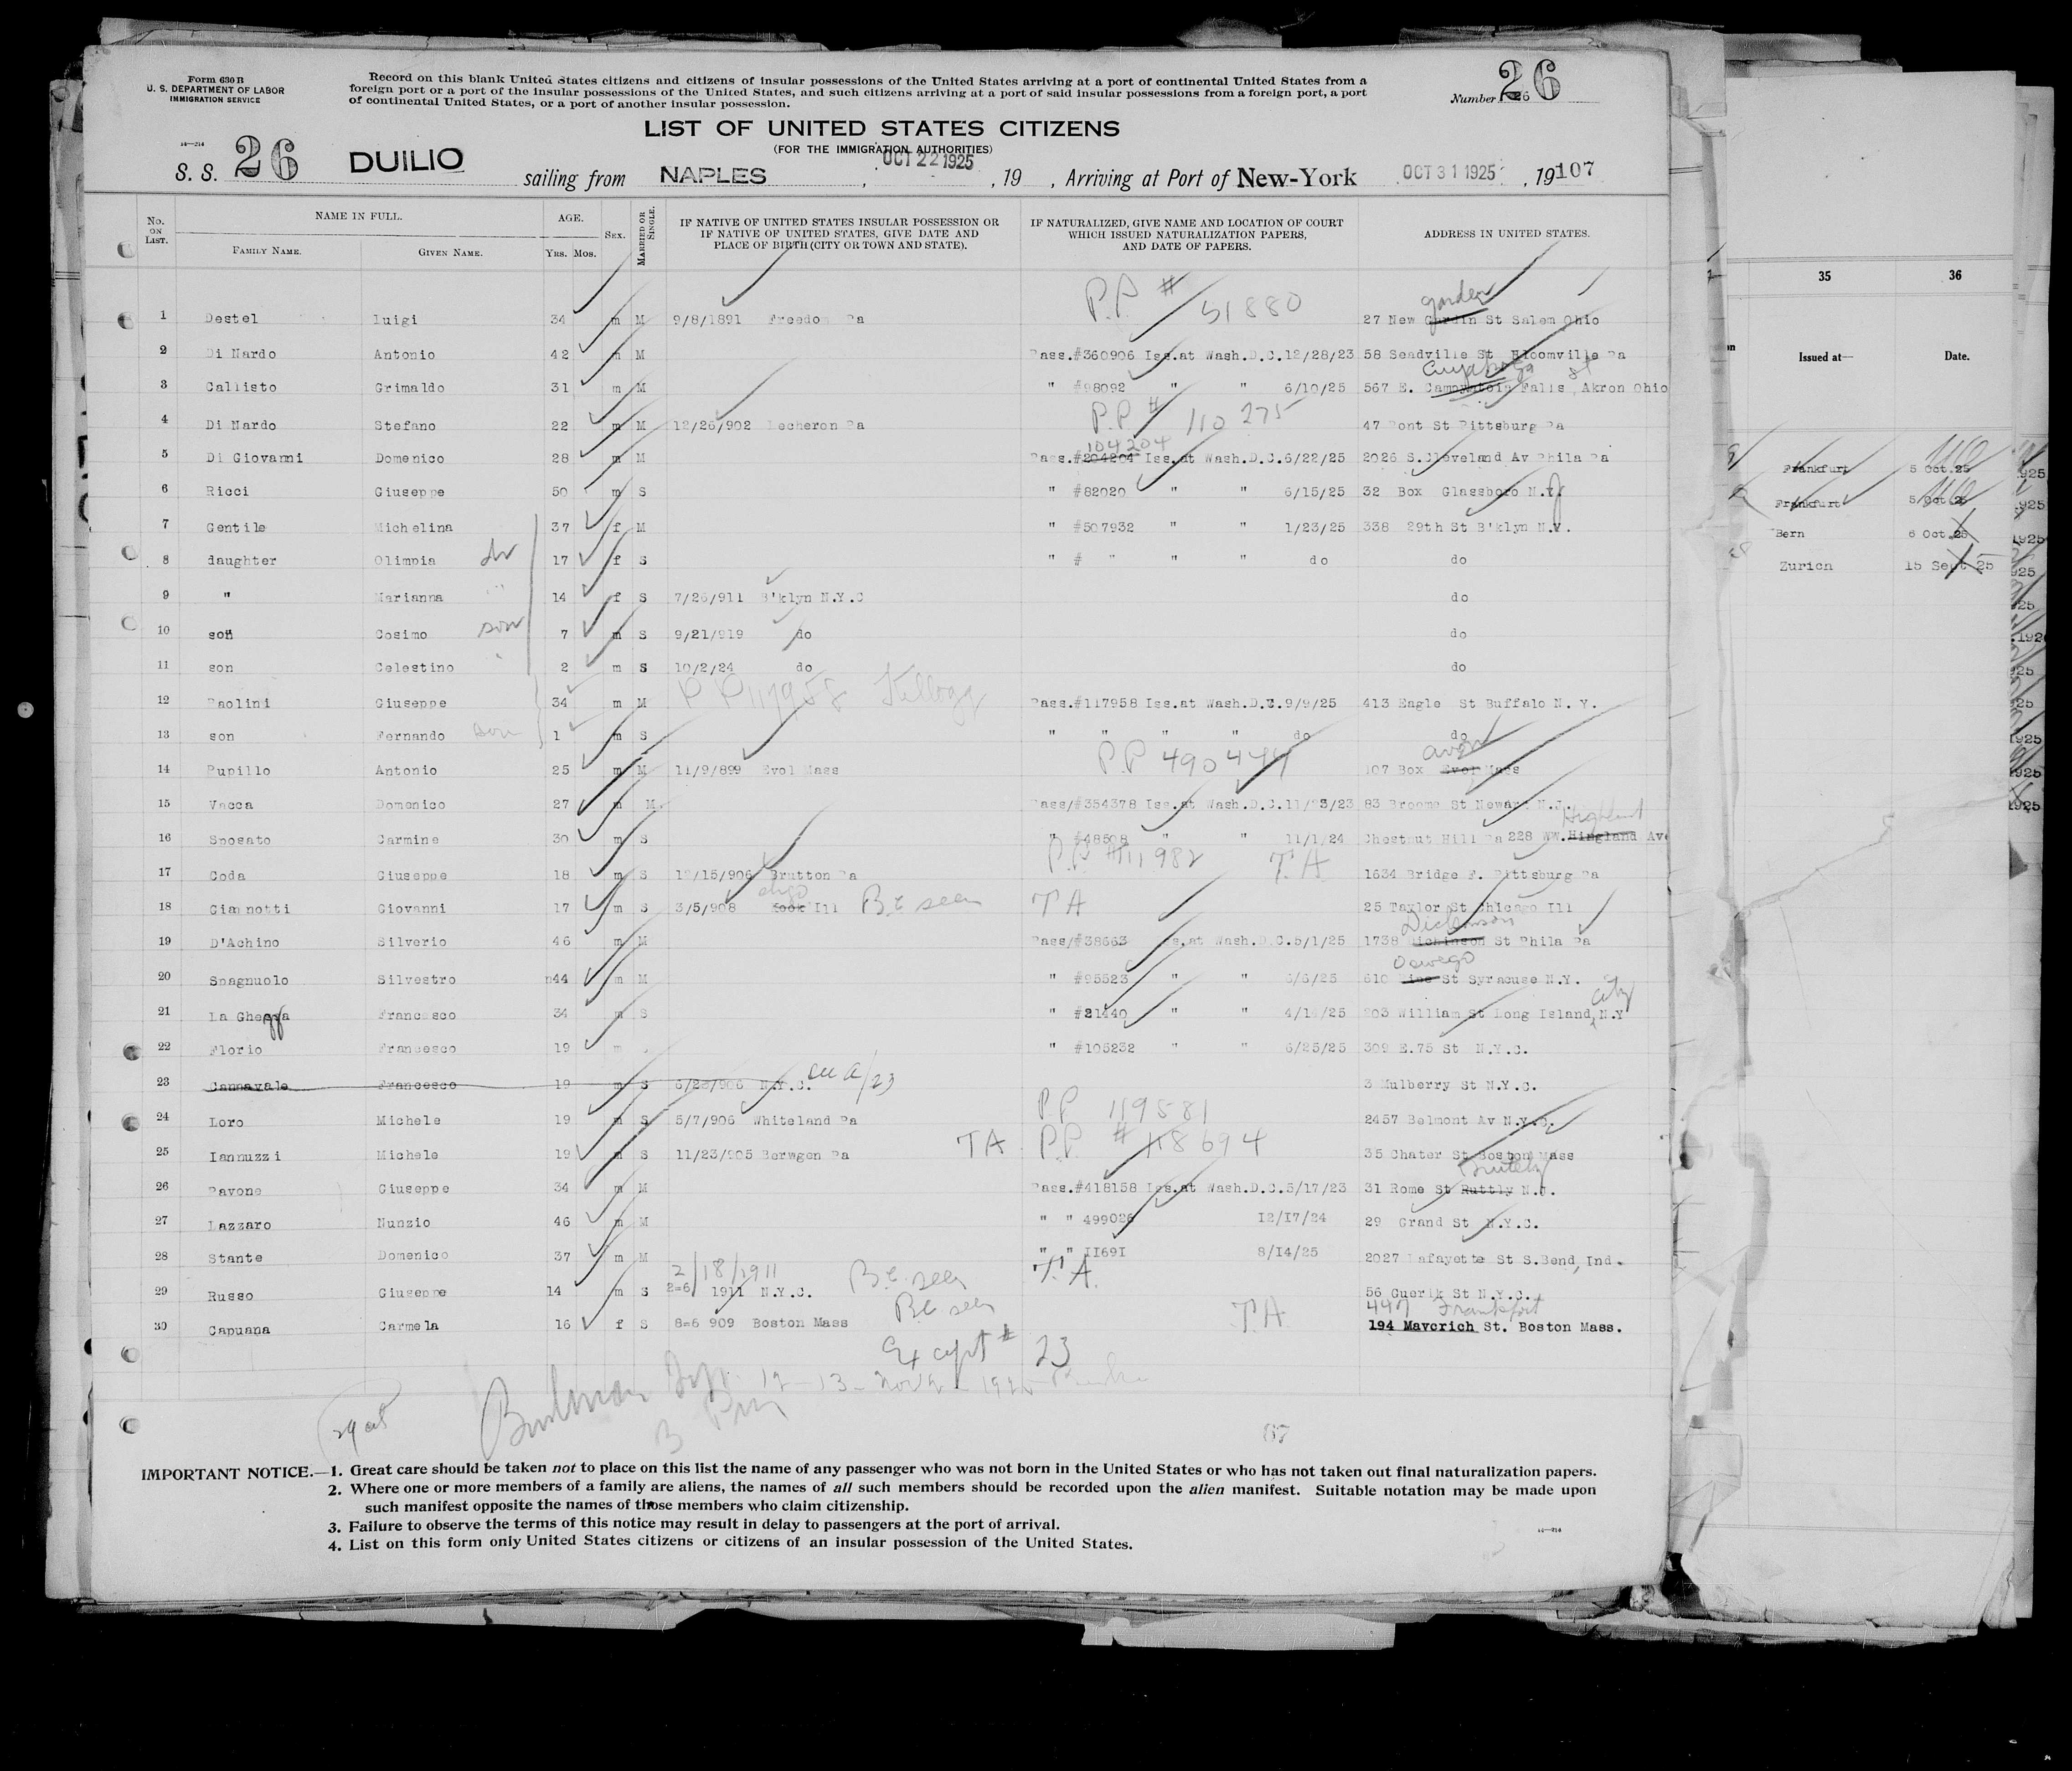 Form 630 B
U. S. DEPARTMENT OF LABOR
IMMIGRATION SERVICE
Record on this blank United States citizens and citizens of insular possessions of the United States arriving at a port of continental United States from a
foreign port or a port of the insular possessions of the United States, and such citizens arriving at a port of said insular possessions from a foreign port, a port
of continental United States, or a port of another insular possession.
Number 26
LIST OF UNITED STATES CITIZENS
(FOR THE IMMIGRATION AUTHORITIES)
S. S. 26 DUILIO sailing from NAPLES, OCT 22 1925, 19 , Arriving at Port of New-York OCT 31 1925, 19107
No. ON LIST. NAME IN FULL. FAMILY NAME. GIVEN NAME. AGE. YRS. MOS. SEX. MARRIED OR SINGLE. IF NATIVE OF UNITED STATES INSULAR POSSESSION OR IF NATIVE OF UNITED STATES, GIVE DATE AND PLACE OF BIRTH (CITY OR TOWN AND STATE). IF NATURALIZED, GIVE NAME AND LOCATION OF COURT WHICH ISSUED NATURALIZATION PAPERS, AND DATE OF PAPERS. ADDRESS IN UNITED STATES.
garden
1 Destel luigi 34 m M 9/8/1891 Freedom Pa P.P # 51880 27 New Gardin St Salem Ohio
2 Di Nardo Antonio 42 m M Pass.#360906 Iss.at Wash.D.C.12/28/23 58 Seadville St Bloomville Pa
3 Callisto Grimaldo 31 m M " #98092 " " 6/10/25 567 E. Cuyahoga Falls st, Akron Ohio
4 Di Nardo Stefano 22 m M 12/26/902 Lecheron Pa P.P # 110 275 47 Pont St Pittsburg Pa
104204
5 Di Giovanni Domenico 28 m M Pass.#204204 Iss.at Wash.D.C.6/22/25 2026 S.Cleveland Av Phila Pa
6 Ricci Giuseppe 50 m S " #82020 " " 6/15/25 32 Box Glassboro N.J
7 Gentile Michelina 37 f M " #507932 " " 1/23/25 338 29th St B'klyn N.Y.
8 daughter Olimpia 17 f S " # " " " do do
9 " Marianna 14 f S 7/26/911 B'klyn N.Y.C do
10 son Cosimo son 7 m S 9/21/919 do do
11 son Celestino 2 m S 10/2/24 do do
12 Paolini Giuseppe 34 m M P P 117958 Kellogg Pass.#117958 Iss.at Wash.D.C.9/9/25 413 Eagle St Buffalo N. Y.
13 son Fernando son 1 m S " " " " do do
avon
14 Pupillo Antonio 25 m M 11/9/899 Evol Mass P.P 490444 107 Box Evol Mass
15 Vacca Domenico 27 m M. Pass/#354378 Iss.at Wash.D.C.11/23/23 83 Broome St Newark N.J.
Highland
16 Sposato Carmine 30 m S " #48508 " " 11/1/24 Chestnut Hill Pa 228 WW.Hingland Ave
17 Coda Giuseppe 18 m S 12/15/906 Brutton Pa P.P #111982 T.A 1634 Bridge F. Pittsburg Pa
18 Giannotti Giovanni 17 m S 3/5/908 Kook Ill B.C seen TA 25 Taylor St Chicago Ill
Dickinson
19 D'Achino Silverio 46 m M Pass/#38663 Iss.at Wash.D.C.5/1/25 1738 Dichinson St Phila Pa
Oswego
20 Spagnuolo Silvestro 44 m M " #95523 " " 6/6/25 610 St Syracuse N.Y.
21 La Ghezza Francesco 34 m S " #21440 " " 203 William St Long Island City, N.Y
22 Florio Francesco 19 m " #105232 " " 6/25/25 309 E.75 St N.Y.C.
23 Cannavale Francesco 19 m S 6/28/906 N.Y.C. 3 Mulberry St N.Y.C.
24 Loro Michele 19 m S 5/7/906 Whiteland Pa P.P 119581 2457 Belmont Av N.Y.C.
25 Iannuzzi Michele 19 m S 11/23/905 Berwgen Pa TA P.P # 118694 35 Chater St Boston Mass
26 Pavone Giuseppe 34 m M Pass.#418158 Iss.at Wash.D.C.5/17/23 31 Rome St Ruttly N.J.
27 Lazzaro Nunzio 46 m M " " 499026 12/17/24 29 Grand St N.Y.C.
28 Stante Domenico 37 m M " " II69I 8/14/25 2027 Lafayette St S.Bend, Ind.
2/18/1911
29 Russo Giuseppe 14 m S 2=6 1911 N.Y.C. B.C. seen T.A. 56 Guerik St N.Y.C.
447 Frankfort
30 Capuana Carmela 16 f S 8=6 909 Boston Mass BC seen TA 194 Mavcrich St. Boston Mass.
Except # 23
87
IMPORTANT NOTICE.—1. Great care should be taken not to place on this list the name of any passenger who was not born in the United States or who has not taken out final naturalization papers.
2. Where one or more members of a family are aliens, the names of all such members should be recorded upon the alien manifest. Suitable notation may be made upon
such manifest opposite the names of those members who claim citizenship.
3. Failure to observe the terms of this notice may result in delay to passengers at the port of arrival.
4. List on this form only United States citizens or citizens of an insular possession of the United States.
35 36
Issued at— Date.
Frankfurt 5 Oct.25
Frankfurt 5 Oct.25
Bern 6 Oct.25
Zurich 15 Sept 25